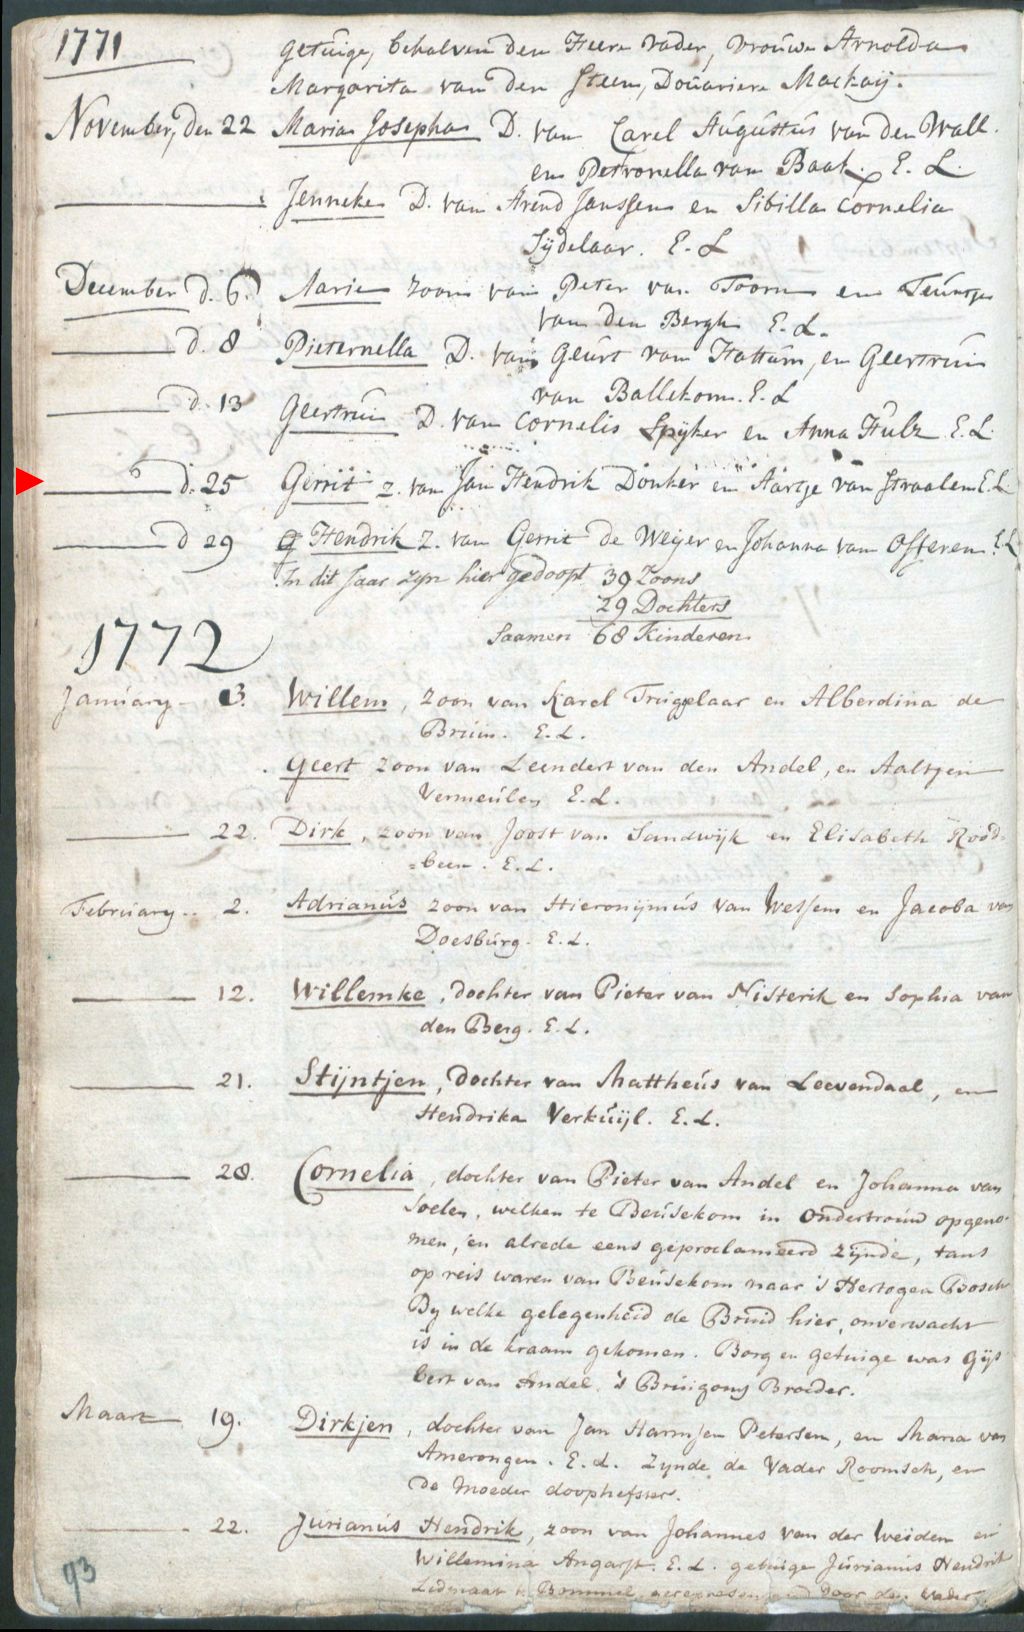 1771 getuige, behalven den Heere vader, vrouwe Arnolda
Margarita van den Steen, Douariere Mackaij.
November, den 22 Maria Josepha D. van Carel Augustus van den Wall.
en Petronella van Baak. E. L.
Jenneke D. van Arend Janssen en Sibilla Cornelia
Sijdelaar. E. L
December d. 6. Marie zoon van Peter van Toorn en Teuntje
van den Bergh E. L.
d. 8 Pieternella D. van Geurt van Hattum, en Geertruy
van Ballekom. E. L
d. 13 Geertrui D. van Cornelis Spijker en Anna Hulz E. L.
d. 25 Gerrit z. van Jan Hendrik Donker en Aartje van Straalen E. L
d 29 Hendrik Z. van Gerrit de Weijer en Johanna van Offeren. E. L
In dit Jaar zyn hier gedoopt 39 Zoons
29 Dochters
Saamen 68 Kinderen
1772
January 3. Willem, zoon van Karel Truigelaar en Alberdina de
Bruin. E. L.
Geert zoon van Leendert van den Andel, en Aaltjen
Vermeulen E. L.
22. Dirk, zoon van Joost van Sandwijk en Elisabeth Rood-
=been. E. L.
February 2. Adrianus zoon van Hieronijmus van Wessem en Jacoba van
Doesburg. E. L.
12. Willemke, dochter van Pieter van Nisterik en Sophia van
den Berg. E. L.
21. Stijntjen, dochter van Mattheus van Leevendaal, en
Hendrika Verkuijl. E. L.
28. Cornelia, dochter van Pieter van Andel en Johanna van
Soelen, welken te Beusekom in ondertrouw opgeno-
men, en alrede eens geproclameerd zijnde, tans
op reis waren van Beusekom naar 's Hertogen Bosch
By welke gelegenheid de Bruid hier, onverwacht
is in de kraam gekomen. Borg en getuige was Gijs
bert van Andel. 's Bruigoms Broeder.
Maart 19. Dirkjen, dochter van Jan Harmsen Petersen, en Maria van
Amerongen. E. L. Zynde de Vader Roomsch, en
de Moeder doophefster.
22. Jurianus Hendrik, zoon van Johannes van der Weiden en
Willemina Angarst. E. L. getuige Jurianus Hendrik
Lidmaat te Bommel gerepresenteerd door den Vader.
93